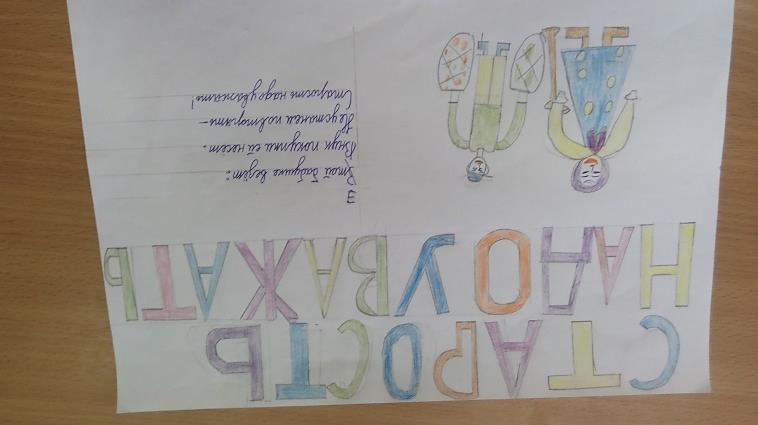 СТАРОСТЬ
НАДО УВАЖАТЬ
Этой бабушке везёт:
Внук покупки ей несёт.
Не устанем повторять –
Старость надо уважать!